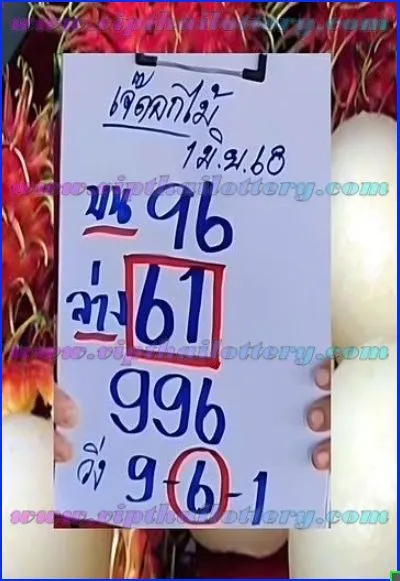 www.vipthailottery.com
เจ๊ดอกไม้
1 มิ.ย. 68
www.vipthailottery.com
บน 96
ล่าง 61
www.vipthailottery.com
996
วิ่ง 9-6-1
www.vipthailottery.com